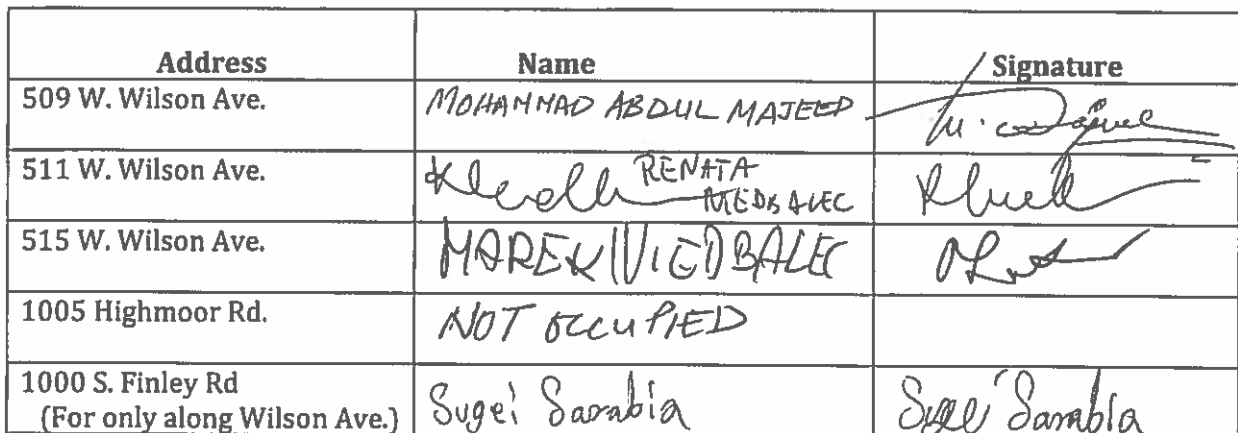 Address Name Signature
509 W. Wilson Ave. MOHAMMAD ABDUL MAJEED
511 W. Wilson Ave. RENATA
515 W. Wilson Ave. MAREK
1005 Highmoor Rd. NOT OCCUPIED
1000 S. Finley Rd
(For only along Wilson Ave.) Sugei Sarabia Sugei Sarabia